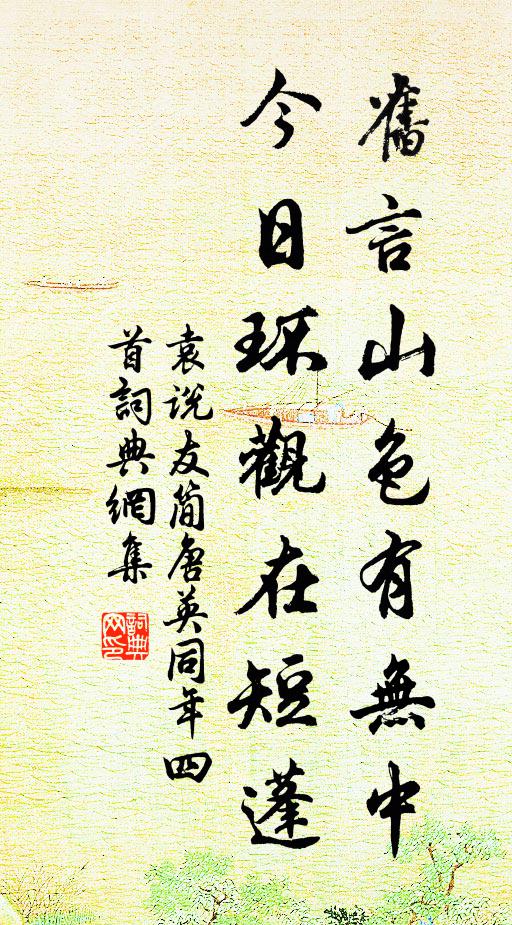 舊言山色有無中
今日环觀在短蓬
袁说友简唐英同年四
首詞典網集
詞典网印